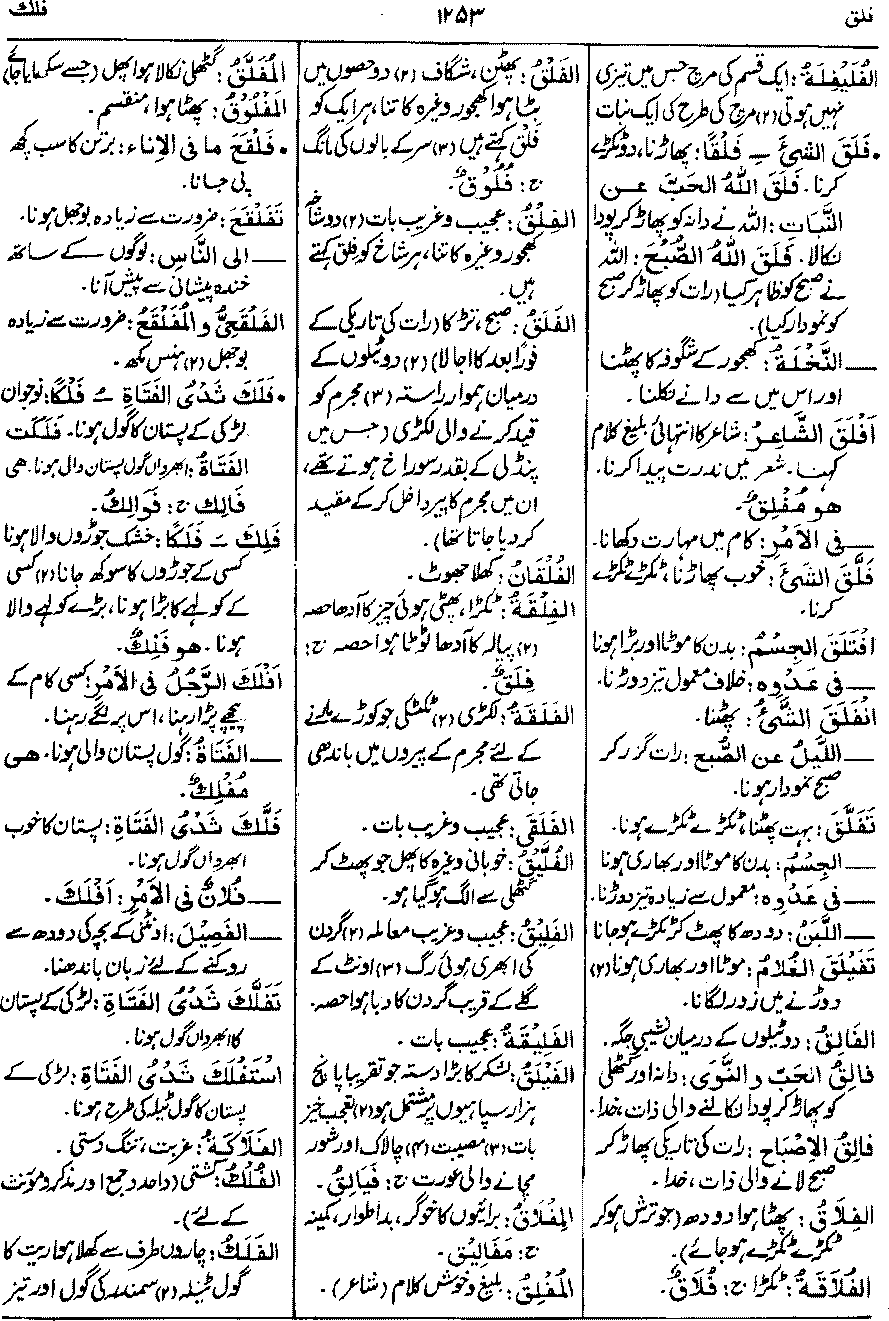 فلق
۱۲۵۳
فلك
الفُلَيْفِلَةُ: ایک قسم کی مرچ جس میں تیزی
نہیں ہوتی (۲) مرچ کی طرح کی ایک نبات
• فَلَقَ الشیَٔ ـِ فَلْقًا: پھاڑنا، دو ٹکڑے
کرنا۔ فَلَقَ اللهُ الحَبَّ عن
النَّبَات: اللہ نے دانہ کو پھاڑ کر پودا
نکالا۔ فَلَقَ اللهُ الصُّبْحَ: اللہ
نے صبح کو ظاہر کیا (رات کو پھاڑ کر صبح
کو نمودار کیا)۔
ــــ النَّخْلَةُ: کھجور کے شگوفہ کا پھٹنا
اور اس میں سے دانے نکلنا۔
أَفْلَقَ الشَّاعِرُ: شاعر کا انتہائی بلیغ کلام
کہنا۔ شعر میں ندرت پیدا کرنا۔
هو مُفْلِقٌ۔
ــــ فی الأَمْرِ: کام میں مہارت دکھانا۔
فَلَّقَ الشیَٔ: خوب پھاڑنا، ٹکڑے ٹکڑے
کرنا۔
افْتَلَقَ الجِسْمُ: بدن کا موٹا اور بڑا ہونا
ــــ فی عَدْوِهِ: خلاف معمول تیز دوڑنا۔
انْفَلَقَ الشَّیُٔ: پھٹنا۔
ــــ اللَّيْلُ عن الصُّبح: رات گزر کر
صبح نمودار ہونا۔
تَفَلَّقَ: بہت پھٹنا، ٹکڑے ٹکڑے ہونا۔
ــــ الجِسْمُ: بدن کا موٹا اور بھاری ہونا
ــــ فی عَدْوِهِ: معمول سے زیادہ تیز دوڑنا۔
ــــ اللَّبَنُ: دودھ کا پھٹ کر ٹکڑے ہو جانا
تَفَيْلَقَ الغُلَامُ: موٹا اور بھاری ہونا (۲)
دوڑنے میں زور لگانا۔
الفَالِقُ: دو ٹیلوں کے درمیان نشیبی جگہ۔
فالِقُ الحَبِّ والنَّوَى: دانہ اور گٹھلی
کو پھاڑ کر پودا نکالنے والی ذات، خدا۔
فالِقُ الإِصْبَاح: رات کی تاریکی پھاڑ کر
صبح لانے والی ذات، خدا۔
الفِلَاقُ: پھٹا ہوا دودھ (جو ترش ہو کر
ٹکڑے ٹکڑے ہو جائے)۔
الفُلَاقَةُ: ٹکڑا ج: فُلَاقٌ۔
الفَلْقُ: پھٹن، شگاف (۲) دو حصوں میں
بٹا ہوا کھجور وغیرہ کا تنا، ہر ایک کو
فَلْق کہتے ہیں (۳) سر کے بالوں کی مانگ
ج: فُلُوْقٌ۔
الفِلْقُ: عجیب و غریب بات (۲) دو شاخہ
کھجور وغیرہ کا تنا، ہر شاخ کو فِلق کہتے
ہیں۔
الفَلَقُ: صبح، تڑکا (رات کی تاریکی کے
فوراً بعد کا اجالا) (۲) دو ٹیلوں کے
درمیان ہموار راستہ (۳) مجرم کو
قید کرنے والی لکڑی (جس میں
پنڈلی کے بقدر سوراخ ہوتے تھے،
ان میں مجرم کا پیر داخل کر کے مقید
کر دیا جاتا تھا)۔
الفُلْقَانُ: کھلا جھوٹ۔
الفِلْقَةُ: ٹکڑا، پھٹی ہوئی چیز کا آدھا حصہ
(۲) پیالہ کا آدھا ٹوٹا ہوا حصہ ج:
فِلَقٌ۔
الفَلَقَةُ: لکڑی (۲) ٹکٹکی جو کوڑے مارنے
کے لئے مجرم کے پیروں میں باندھی
جاتی تھی۔
الفَلْقَى: عجیب و غریب بات۔
الفُلَّيْقُ: خوبانی وغیرہ کا پھل جو پھٹ کر
گٹھلی سے الگ ہو گیا ہو۔
الفَلِيْقُ: عجیب و غریب معاملہ (۲) گردن
کی ابھری ہوئی رگ (۳) اونٹ کے
گلے کے قریب گردن کا دبا ہوا حصہ۔
الفَلِيْقَةُ: عجیب بات۔
الفَيْلَقُ: لشکر کا بڑا دستہ جو تقریبا پانچ
ہزار سپاہیوں پر مشتمل ہو (۲) تعجب خیز
بات (۳) مصیبت (۴) چالاک اور شور
مچانے والی عورت ج: فَيَالِقُ۔
المِفْلَاقُ: برائیوں کا خوگر، بد اطوار، کمینہ
ج: مَفَالِيْق۔
المُفْلِقُ: بلیغ و خوش کلام (شاعر)۔
المُفَلَّقُ: گٹھلی نکالا ہوا پھل (جسے سکھایا جائے)
المَفْلُوْقُ: پھٹا ہوا، منقسم۔
• فَلْقَعَ ما فی الإناء: برتن کا سب کچھ
پی جانا۔
تَفَلْقَعَ: ضرورت سے زیادہ بوجھل ہونا۔
ــــ الى النَّاسِ: لوگوں کے ساتھ
خندہ پیشانی سے پیش آنا۔
الفَلْقَعِیُّ والمُفَلْقَعُ: ضرورت سے زیادہ
بوجھل (۲) ہنس مکھ۔
• فَلَكَ ثَدْىُ الفَتَاةِ ـُ فَلْكًا: نوجوان
لڑکی کے پستان کا گول ہونا۔ فَلَكَت
الفَتَاةُ: ابھرواں گول پستان والی ہونا۔ هی
فَالِكٌ ج: فَوَالِكُ۔
فَلِكَ ـَ فَلَكًا: خشک جوڑوں والا ہونا
کسی کے جوڑوں کا سوکھ جانا (۲) کسی
کے کولہے کا بڑا ہونا، بڑے کولہے والا
ہونا۔ هو فَلِكٌ۔
أَفْلَكَ الرَّجُلُ فی الأَمْرِ: کسی کام کے
پیچھے پڑا رہنا، اس پر لگے رہنا۔
ــــ الفَتَاةُ: گول پستان والی ہونا۔ هی
مُفْلِكٌ۔
فَلَّكَ ثَدْىُ الفَتَاةِ: پستان کا خوب
ابھرواں گول ہونا۔
ــــ فُلَانٌ فی الأَمْرِ: أَفْلَكَ۔
ــــ الفَصِيْلَ: اونٹنی کے بچہ کی دودھ سے
روکنے کے لئے زبان باندھنا۔
تَفَلَّكَ ثَدْىُ الفَتَاةِ: لڑکی کے پستان
کا ابھرواں گول ہونا۔
اسْتَفْلَكَ ثَدْىُ الفَتَاةِ: لڑکی کے
پستان کا گول ٹیلہ کی طرح ہونا۔
الفَلَاكَةُ: غربت، تنگ دستی۔
الفُلْكُ: کشتی (واحد و جمع اور مذکر و مؤنث
کے لئے)۔
الفَلَكُ: چاروں طرف سے کھلا ہوا ریت کا
گول ٹیلہ (۲) سمندر کی گول اور تیز